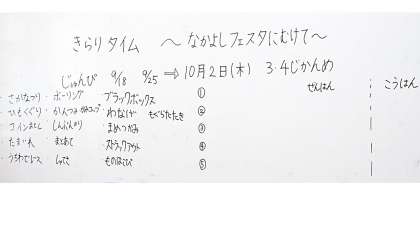 きらりタイム 〜なかよしフェスタにむけて〜
じゅんび 9/18 9/25 ⇒ 10月2日(木) 3・4じかんめ
ぜんはん こうはん
・さかなつり ・ボーリング ・ブラックボックス ①
・ひもくぐり ・かんつみ ・わなげ もぐらたたき ②
・コインおとし ・まめつかみ ③
・たまいれ ・まとあて ・ストラックアウト ④
・ものはこび ⑤